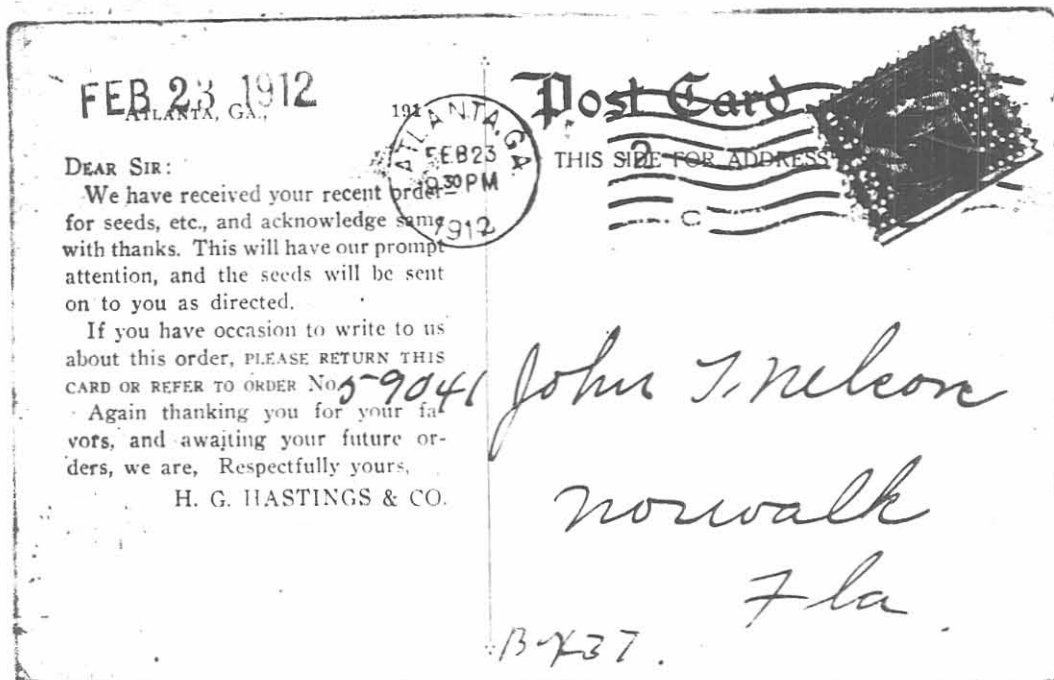 FEB 23 1912
ATLANTA, GA., 191
DEAR SIR:
We have received your recent order
for seeds, etc., and acknowledge same
with thanks. This will have our prompt
attention, and the seeds will be sent
on to you as directed.
If you have occasion to write to us
about this order, PLEASE RETURN THIS
CARD OR REFER TO ORDER No. 59041
Again thanking you for your fa-
vors, and awaiting your future or-
ders, we are, Respectfully yours,
H. G. HASTINGS & CO.
ATLANTA, GA.
FEB 23
30 PM
1912
Post Card
THIS SIDE FOR ADDRESS
2
C
John T. Nelson
Norwalk
Fla.